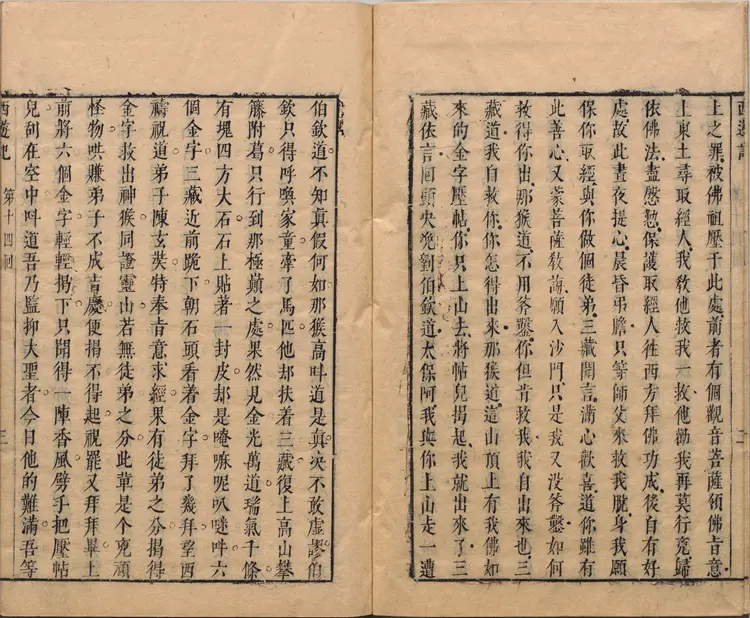 西遊記
上之罪被佛祖壓于此處前者有個觀音菩薩領佛旨意
上東土尋取經人我教他救我一救他勸我再莫行兇歸
依佛法盡慇懃保護取經人往西方拜佛功成後自有好
處故此晝夜提心晨昏弔膽只等師父來救我脫身我願
保你取經與你做個徒弟三藏聞言滿心歡喜道你雖有
此善心又蒙菩薩教誨願入沙門只是我又沒斧鑿如何
救得你出那猴道不用斧鑿你但肯救我我自出來也三
藏道我自救你你怎得出來那猴道這山頂上有我佛如
來的金字壓帖你只上山去將帖兒揭起我就出來了三
藏依言回頭央浼劉伯欽道太保阿我與你上山走一遭
伯欽道不知真假何如那猴高呌道是真決不敢虛謬伯
欽只得呼喚家童牽了馬匹他却扶着三藏復上高山攀
籐附葛只行到那極巔之處果然見金光萬道瑞氣千條
有塊四方大石石上貼著一封皮却是唵嘛呢叭㘄吽六
個金字三藏近前跪下朝石頭看着金字拜了幾拜望西
禱祝道弟子陳玄奘特奉旨意求經果有徒弟之分揭得
金字救出神猴同證靈山若無徒弟之分此輩是個兇頑
怪物哄賺弟子不成吉慶便揭不得起祝罷又拜拜畢上
前將六個金字輕輕揭下只聞得一陣香風劈手把壓帖
兒刮在空中呌道吾乃監押大聖者今日他的難滿吾等
西遊記 第十四回 三